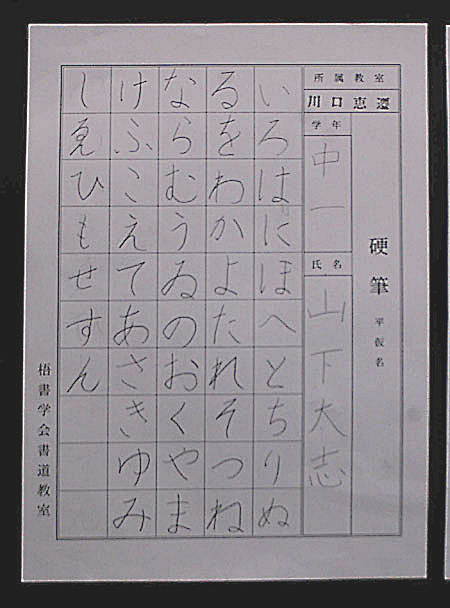 硬筆 平仮名
所属教室
川口恵遷
学年
中一
氏名
山下大志
いろはにほへとちりぬ
るをわかよたれそつね
ならむうゐのおくやま
けふこえてあさきゆみ
しゑひもせすん
梧書学会書道教室